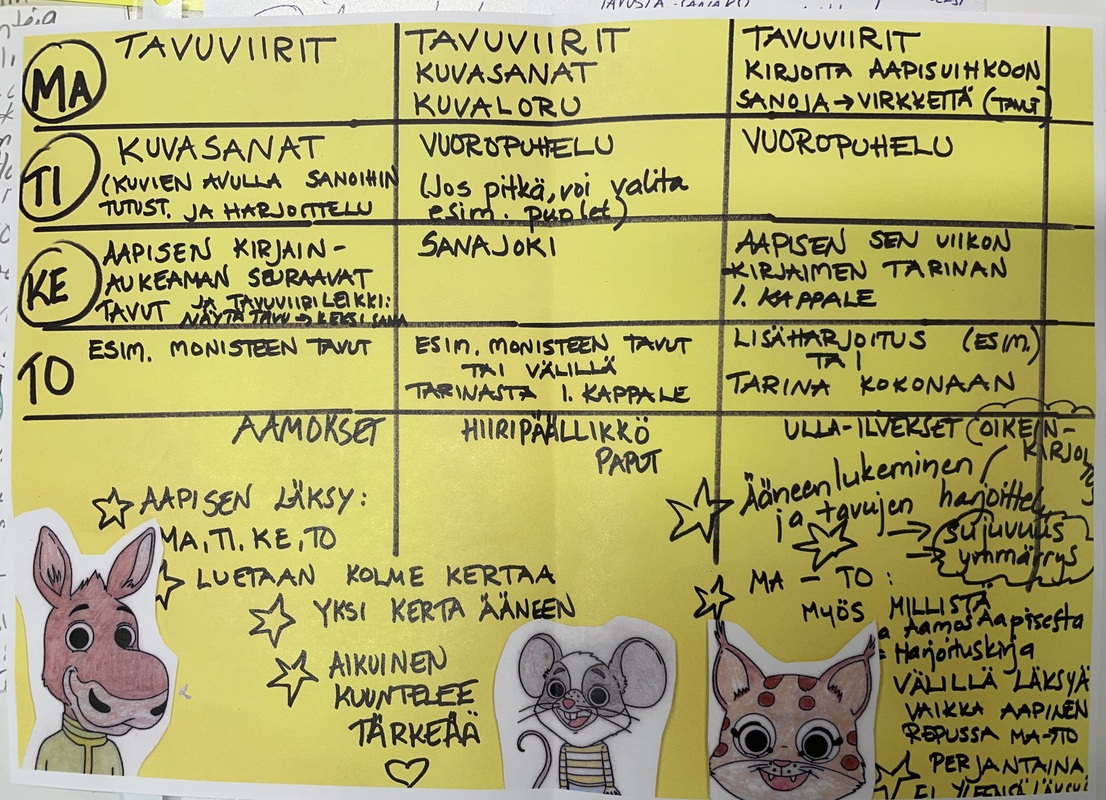 MA
TAVUVIIRIT
TAVUVIIRIT
KUVASANAT
KUVALORU
TAVUVIIRIT
KIRJOITA AAPISVIHKOON
SANOJA → VIRKKEITÄ (TAVUT)
TI
KUVASANAT
(KUVIEN AVULLA SANOIHIN
TUTUST. JA HARJOITTELU
VUOROPUHELU
(Jos pitkä, voi valita
esim. puolet)
VUOROPUHELU
KE
AAPISEN KIRJAIN-
AUKEAMAN SEURAAVAT
TAVUT JA TAVUVIIRILEIKKI:
NÄYTÄ TAVU → KEKSI SANA
SANAJOKI
AAPISEN SEN VIIKON
KIRJAIMEN TARINAN
1. KAPPALE
TO
ESIM. MONISTEEN TAVUT
ESIM. MONISTEEN TAVUT
TAI VÄLILLÄ
TARINASTA 1. KAPPALE
LISÄHARJOITUS (ESIM.)
TAI
TARINA KOKONAAN
AAMOKSET
HIIRIPÄÄLLIKKÖ
PAPUT
ULLA-ILVEKSET (OIKEIN-
KIRJOI
AAPISEN LÄKSY:
MA, TI, KE, TO
LUETAAN KOLME KERTAA
YKSI KERTA ÄÄNEEN
AIKUINEN
KUUNTELEE
TÄRKEÄÄ
Ääneen lukeminen
ja tavujen harjoittelu
→ sujuvuus
→ ymmärrys
MA - TO:
MYÖS MILLISTÄ
Aamos Aapisesta
Harjoituskirja
VÄLILLÄ LÄKSYÄ
VAIKKA AAPINEN
REPUSSA MA-TO
PERJANTAINA
EI YLEENSÄ LÄKSYÄ